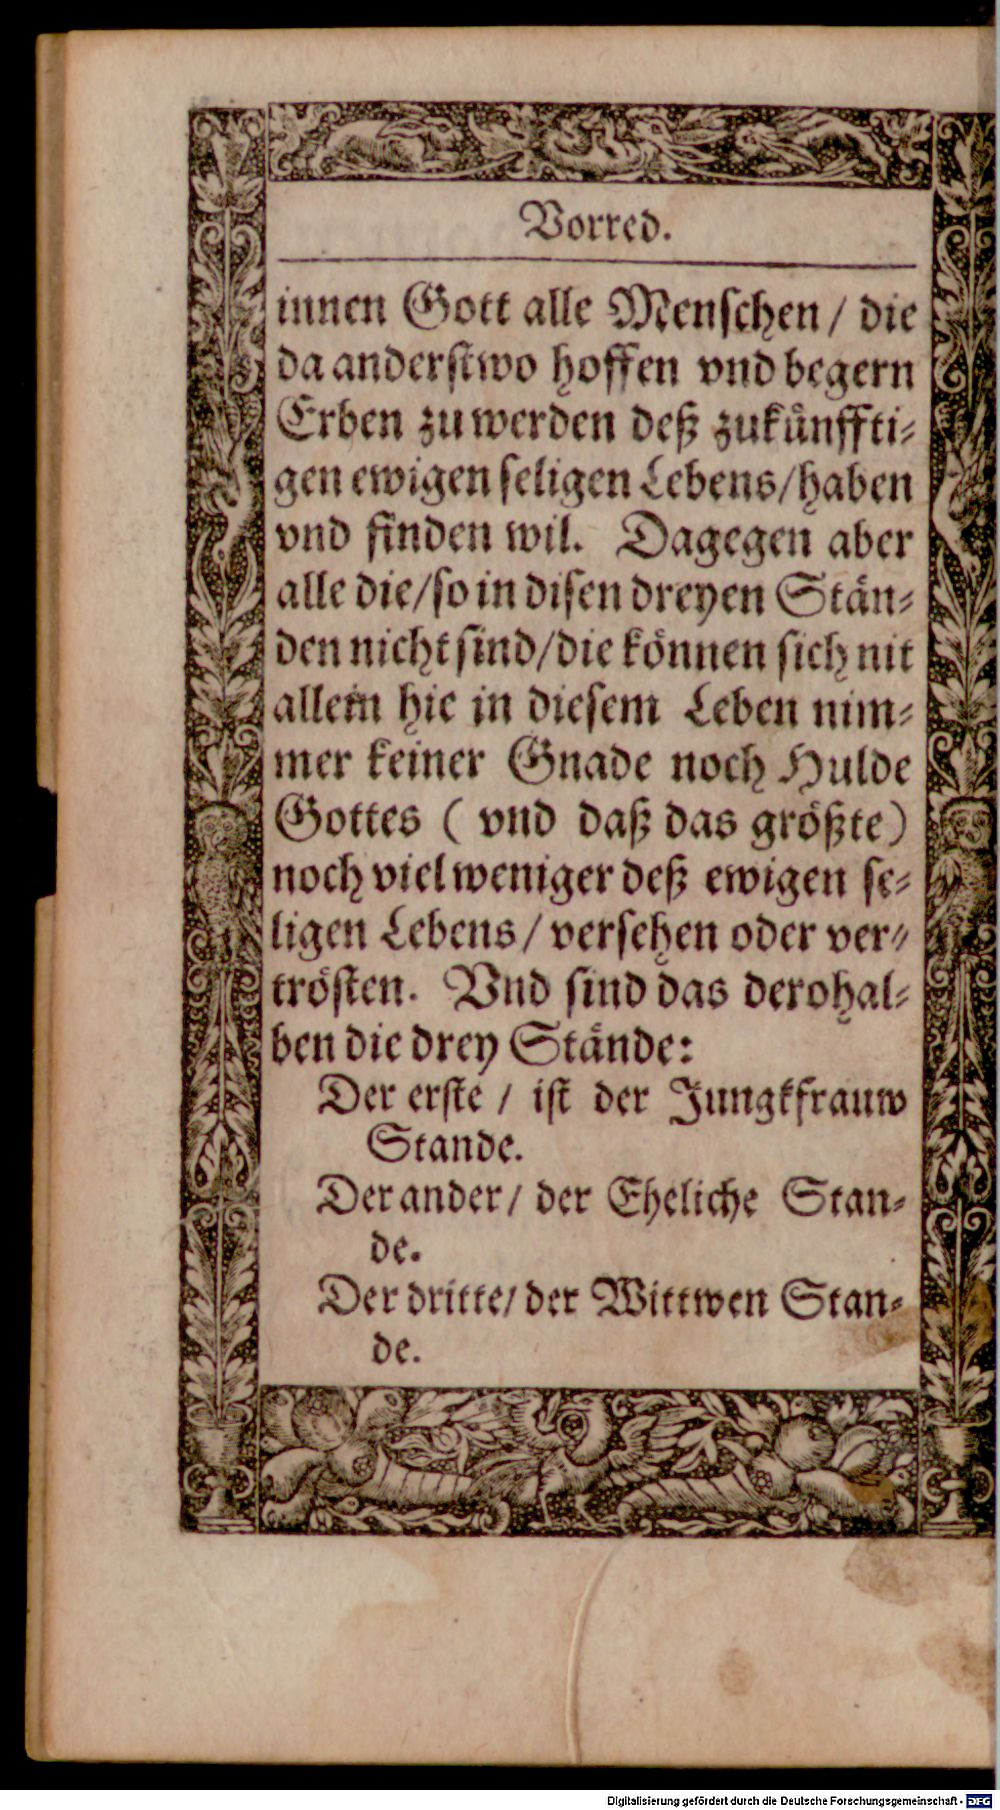 Vorred.
innen Gott alle Menschen / die
da anderstwo hoffen vnd begern
Erben zu werden deß zukůnffti-
gen ewigen seligen Lebens / haben
vnd finden wil. Dagegen aber
alle die / so in disen dreyen Stän-
den nicht sind / die können sich nit
allein hie in diesem Leben nim-
mer keiner Gnade noch Hulde
Gottes ( vnd daß das größte )
noch viel weniger deß ewigen se-
ligen Lebens / versehen oder ver-
trösten. Vnd sind das derohal-
ben die drey Stände:
Der erste / ist der Jungkfrauw
Stande.
Der ander / der Eheliche Stan-
de.
Der dritte / der Wittwen Stan-
de.
Digitalisierung gefördert durch die Deutsche Forschungsgemeinschaft - DFG